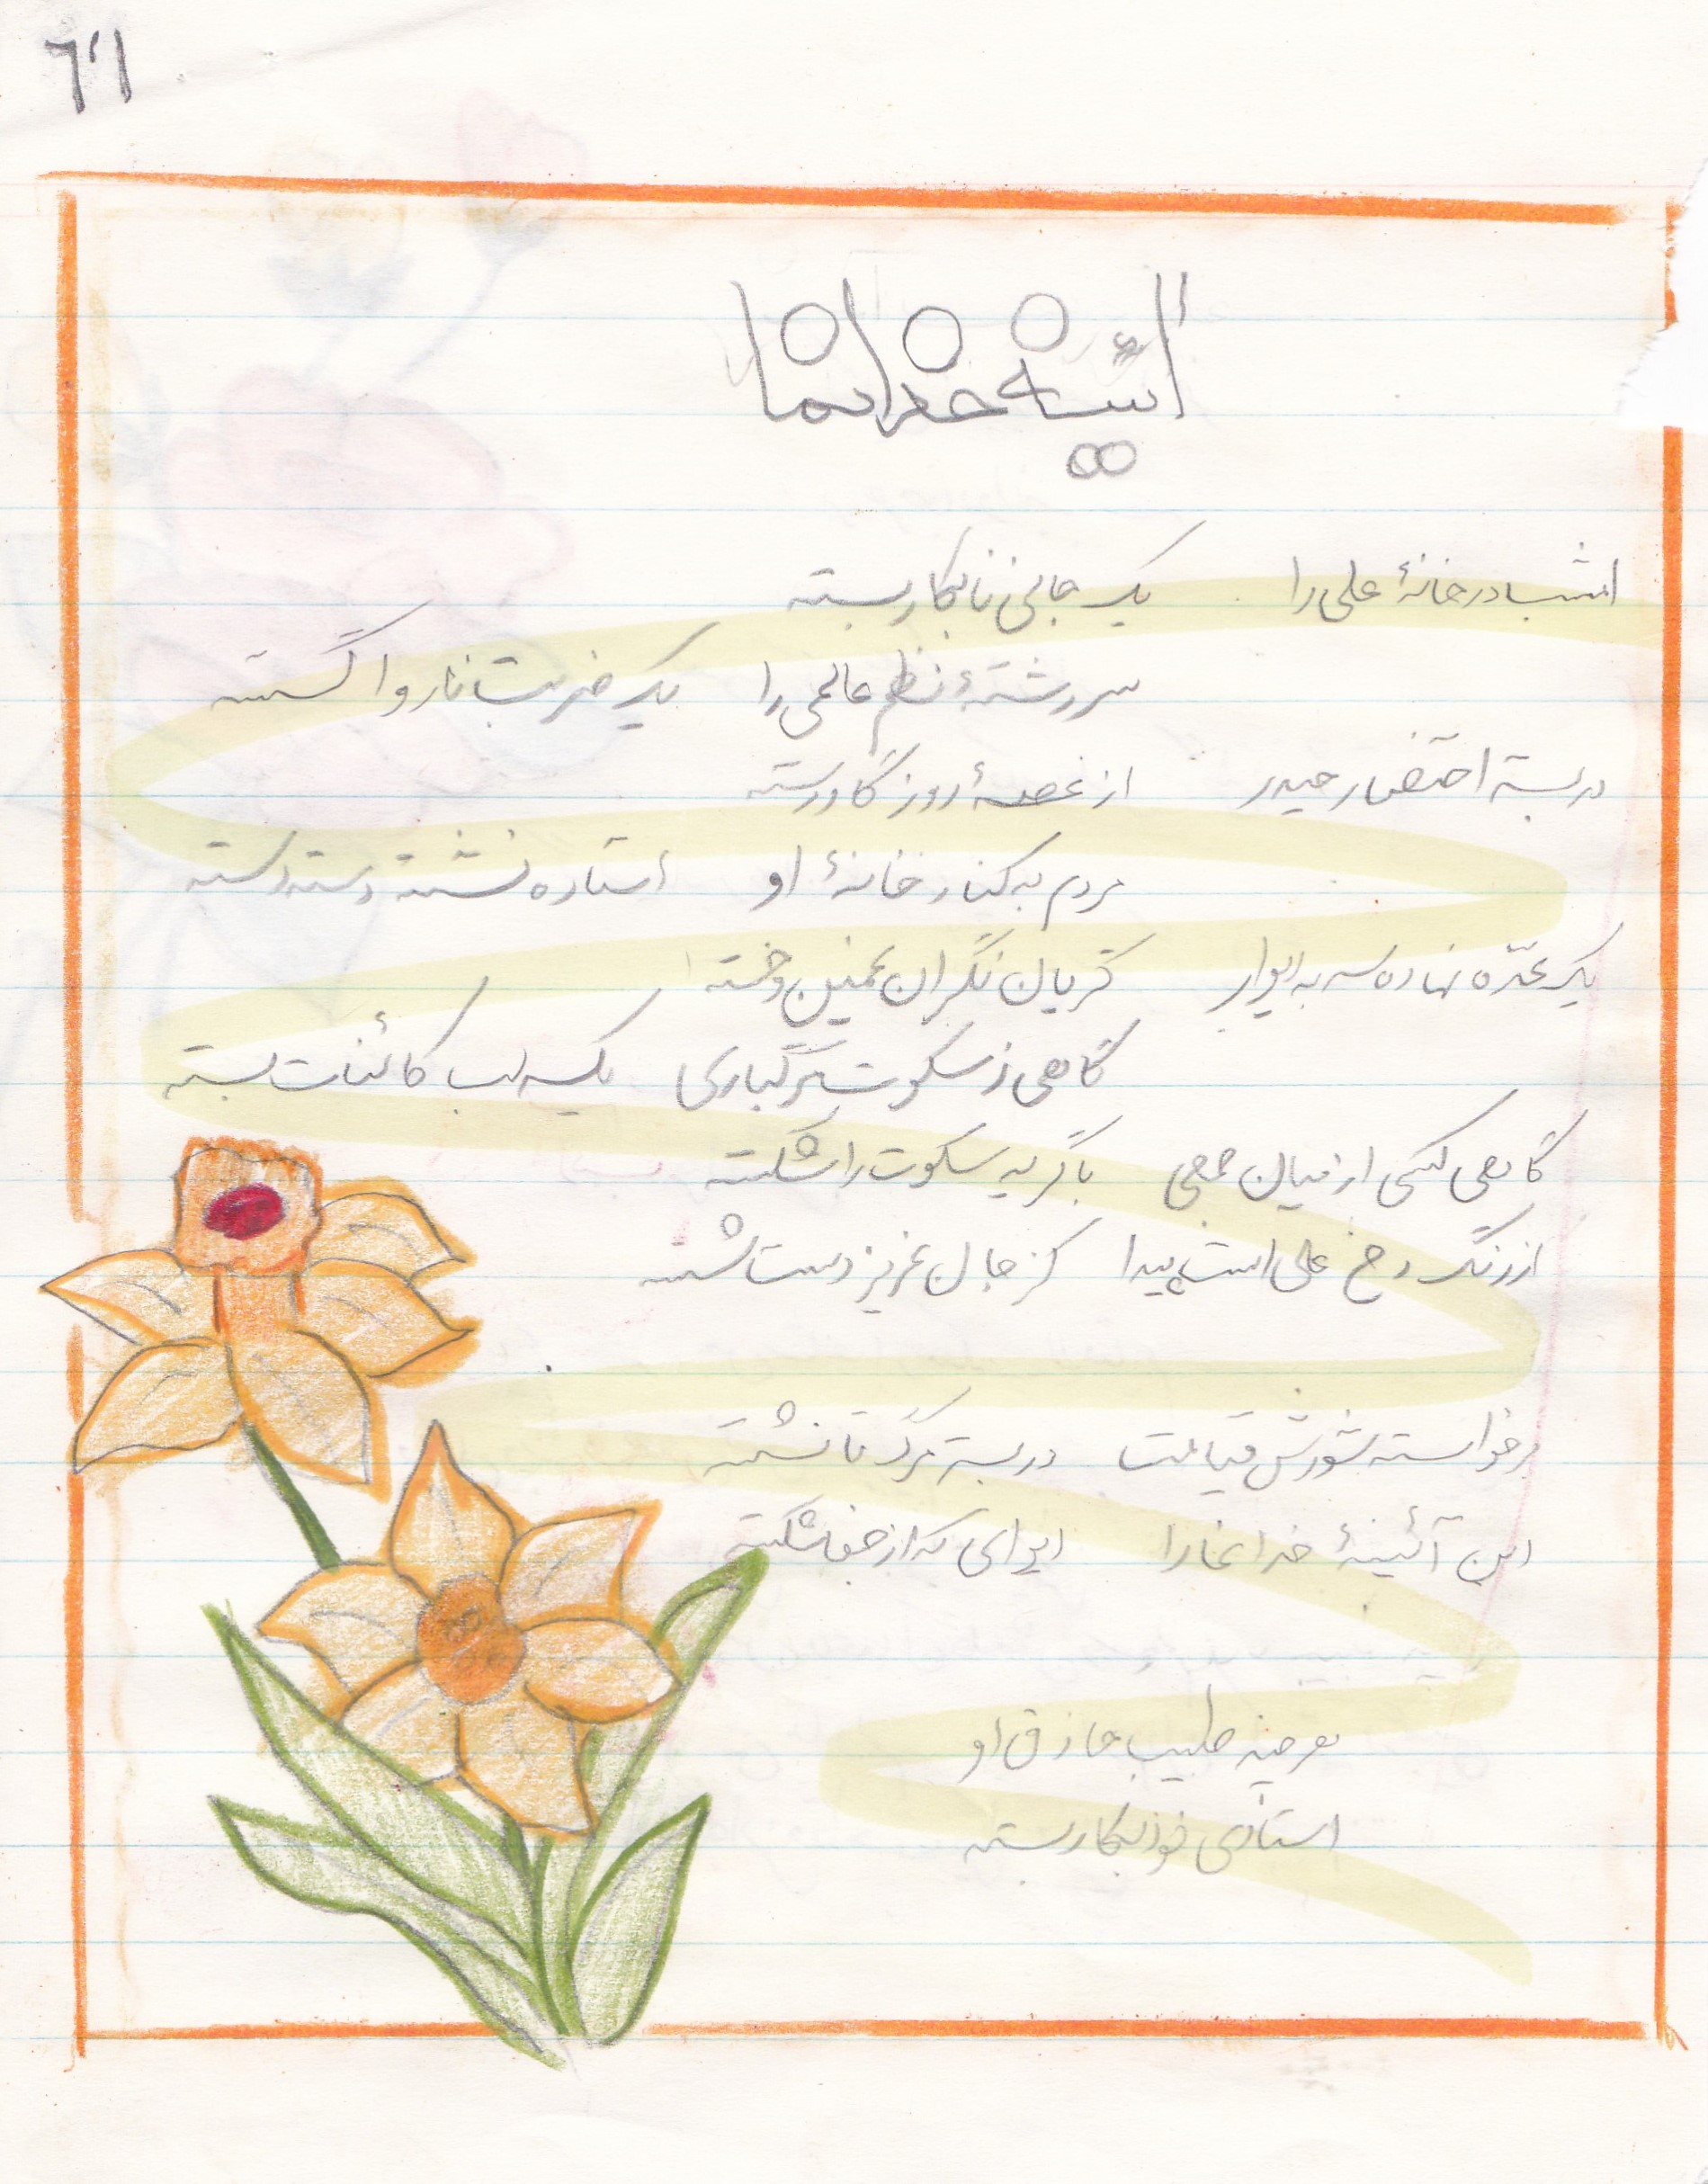 ۶۹۱
آئینه خدانما
امشب در خانهٔ علی را یک جانی نابکار بسته
سررشتهٔ نظم عالمی را یک ضربت ناروا گسسته
در بستر احتضار حیدر از غصهٔ روزگار رسته
مردم به کنار خانهٔ او استاده نشسته دسته دسته
یک عدّه نهاده سر به دیوار گریان نگران غمین و خسته
گاهی ز سکوت مرگباری یکسر لب کائنات بسته
گاهی کسی از میان جمعی با گریه سکوت را شکسته
از رنگ رخ علی است پیدا کز جان عزیز دست شسته
برخواسته شورش قیامت در بستر مرگ تا نشسته
این آئینهٔ خدانما را ایوای که از جفا شکسته
هر چند طبیب حاذق او
استادی خود بکار بسته